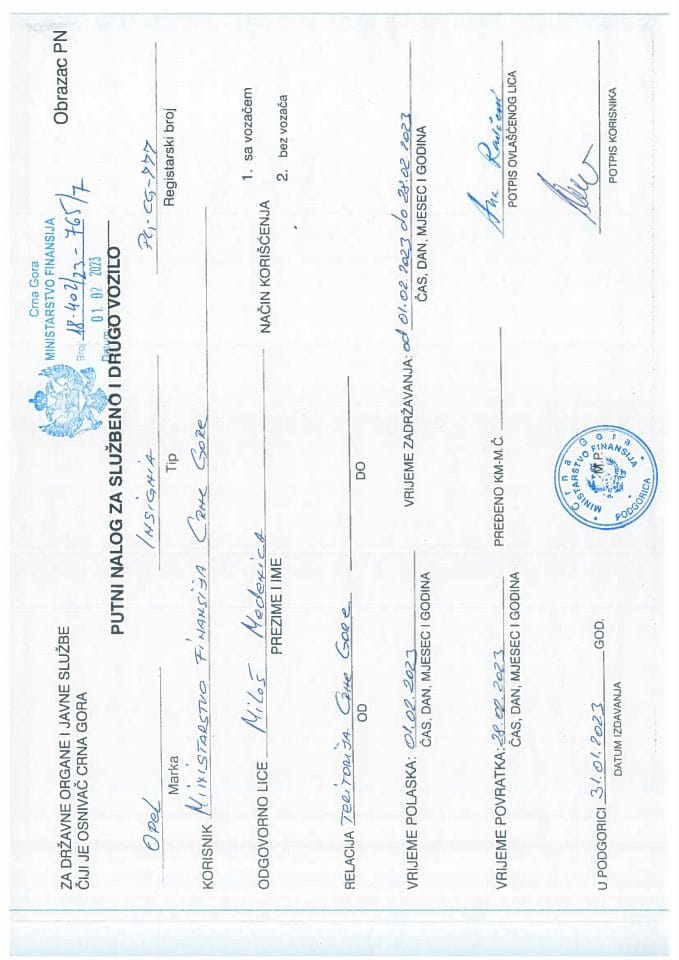 ZA DRŽAVNE ORGANE I JAVNE SLUŽBE
ČIJI JE OSNIVAČ CRNA GORA
Crna Gora
MINISTARSTVO FINANSIJA
Broj 18-402/23-765/7
Datum 01 02 2023
Obrazac PN
PUTNI NALOG ZA SLUŽBENO I DRUGO VOZILO
Opel INSIGNIA PG-CG-777
Marka Tip Registarski broj
KORISNIK Ministarstvo Finansija Crne Gore
ODGOVORNO LICE Miloš Medenica NAČIN KORIŠĆENJA 1. sa vozačem
PREZIME I IME 2. bez vozača
RELACIJA Teritorija Crne Gore
OD DO
VRIJEME POLASKA: 01.02.2023 VRIJEME ZADRŽAVANJA: od 01.02.2023 do 28.02.2023
ČAS, DAN, MJESEC I GODINA ČAS, DAN, MJESEC I GODINA
VRIJEME POVRATKA: 28.02.2023 PREĐENO KM-M.Č.
ČAS, DAN, MJESEC I GODINA POTPIS OVLAŠĆENOG LICA
U PODGORICI 31.01.2023 GOD.
DATUM IZDAVANJA
M.P.
Crna Gora
MINISTARSTVO FINANSIJA
PODGORICA
POTPIS KORISNIKA